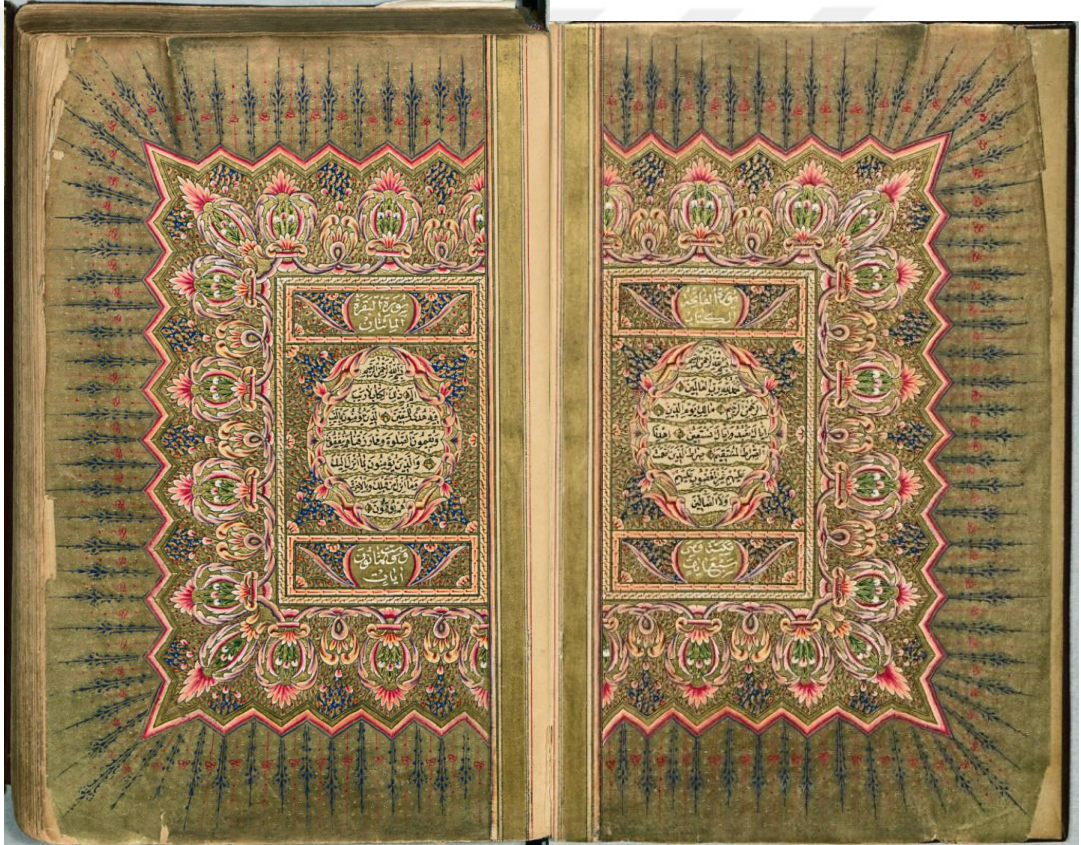 سورة الفاتحة
الكتاب
بسم الله الرحمن الرحيم
الحمد لله رب العالمين
الرحمن الرحيم مالك يوم الدين
اياك نعبد واياك نستعين اهدنا
الصراط المستقيم صراط الذين انعمت
عليهم غير المغضوب عليهم
ولا الضالين
وهي
سبع ايات
سورة البقرة
المائتان
بسم الله الرحمن الرحيم
الم ذلك الكتاب لا ريب
فيه هدى للمتقين الذين يؤمنون بالغيب
ويقيمون الصلوة ومما رزقناهم ينفقون
والذين يؤمنون بما انزل اليك
وما انزل من قبلك وبالاخرة
هم يوقنون
ثمانون
ايات